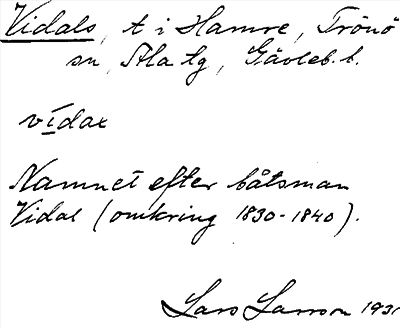 Vidals, t i Hamre, Trönö
sn, Ala tg, Gävleb. l.
vídax
Namnet efter båtsman
Vidal (omkring 1830-1840).
Lars Larsson 1931